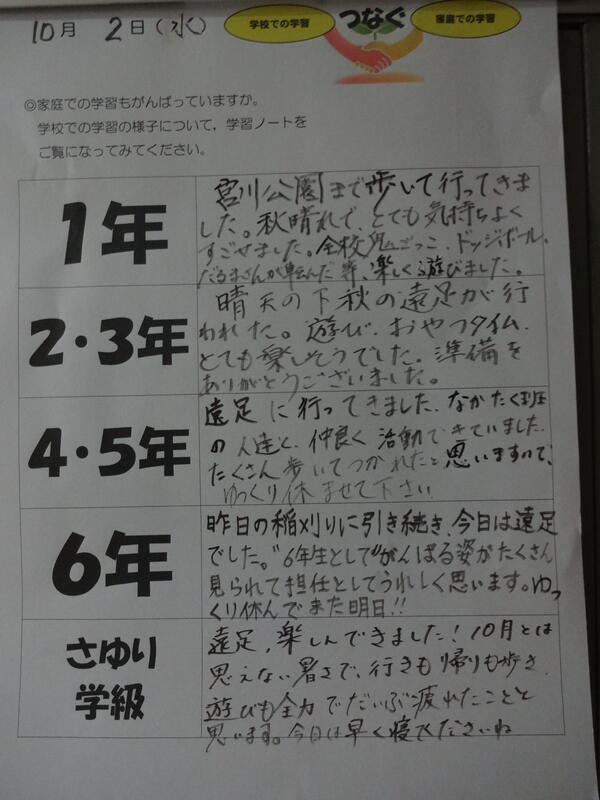 10月 2日(水)
学校での学習
つなぐ
家庭での学習
◎家庭での学習もがんばっていますか。
学校での学習の様子について，学習ノートを
ご覧になってみてください。
1年
宮川公園まで歩いて行ってきま
した。秋晴れで、とても気持ちよく
すごせました。全校鬼ごっこ、ドッジボール、
だるまさんが転んだ等、楽しく遊びました。
2・3年
晴天の下秋の遠足が行
われた。遊び、おやつタイム、
とても楽しそうでした。準備を
ありがとうございました。
4・5年
遠足に行ってきました、なかたく班
の人達と、仲良く活動できていました、
たくさん歩いてつかれたと思いますので、
ゆっくり休ませて下さい
6年
昨日の稲刈りに引き続き、今日は遠足
でした。"6年生として"がんばる姿がたくさん
見られて担任としてうれしく思います。ゆっ
くり休んでまた明日!!
さゆり
学級
遠足、楽しんできました！10月とは
思えない暑さで、行きも帰りも歩き、
遊びも全力でだいぶ疲れたことと
思います。今日は早く寝てくださいね